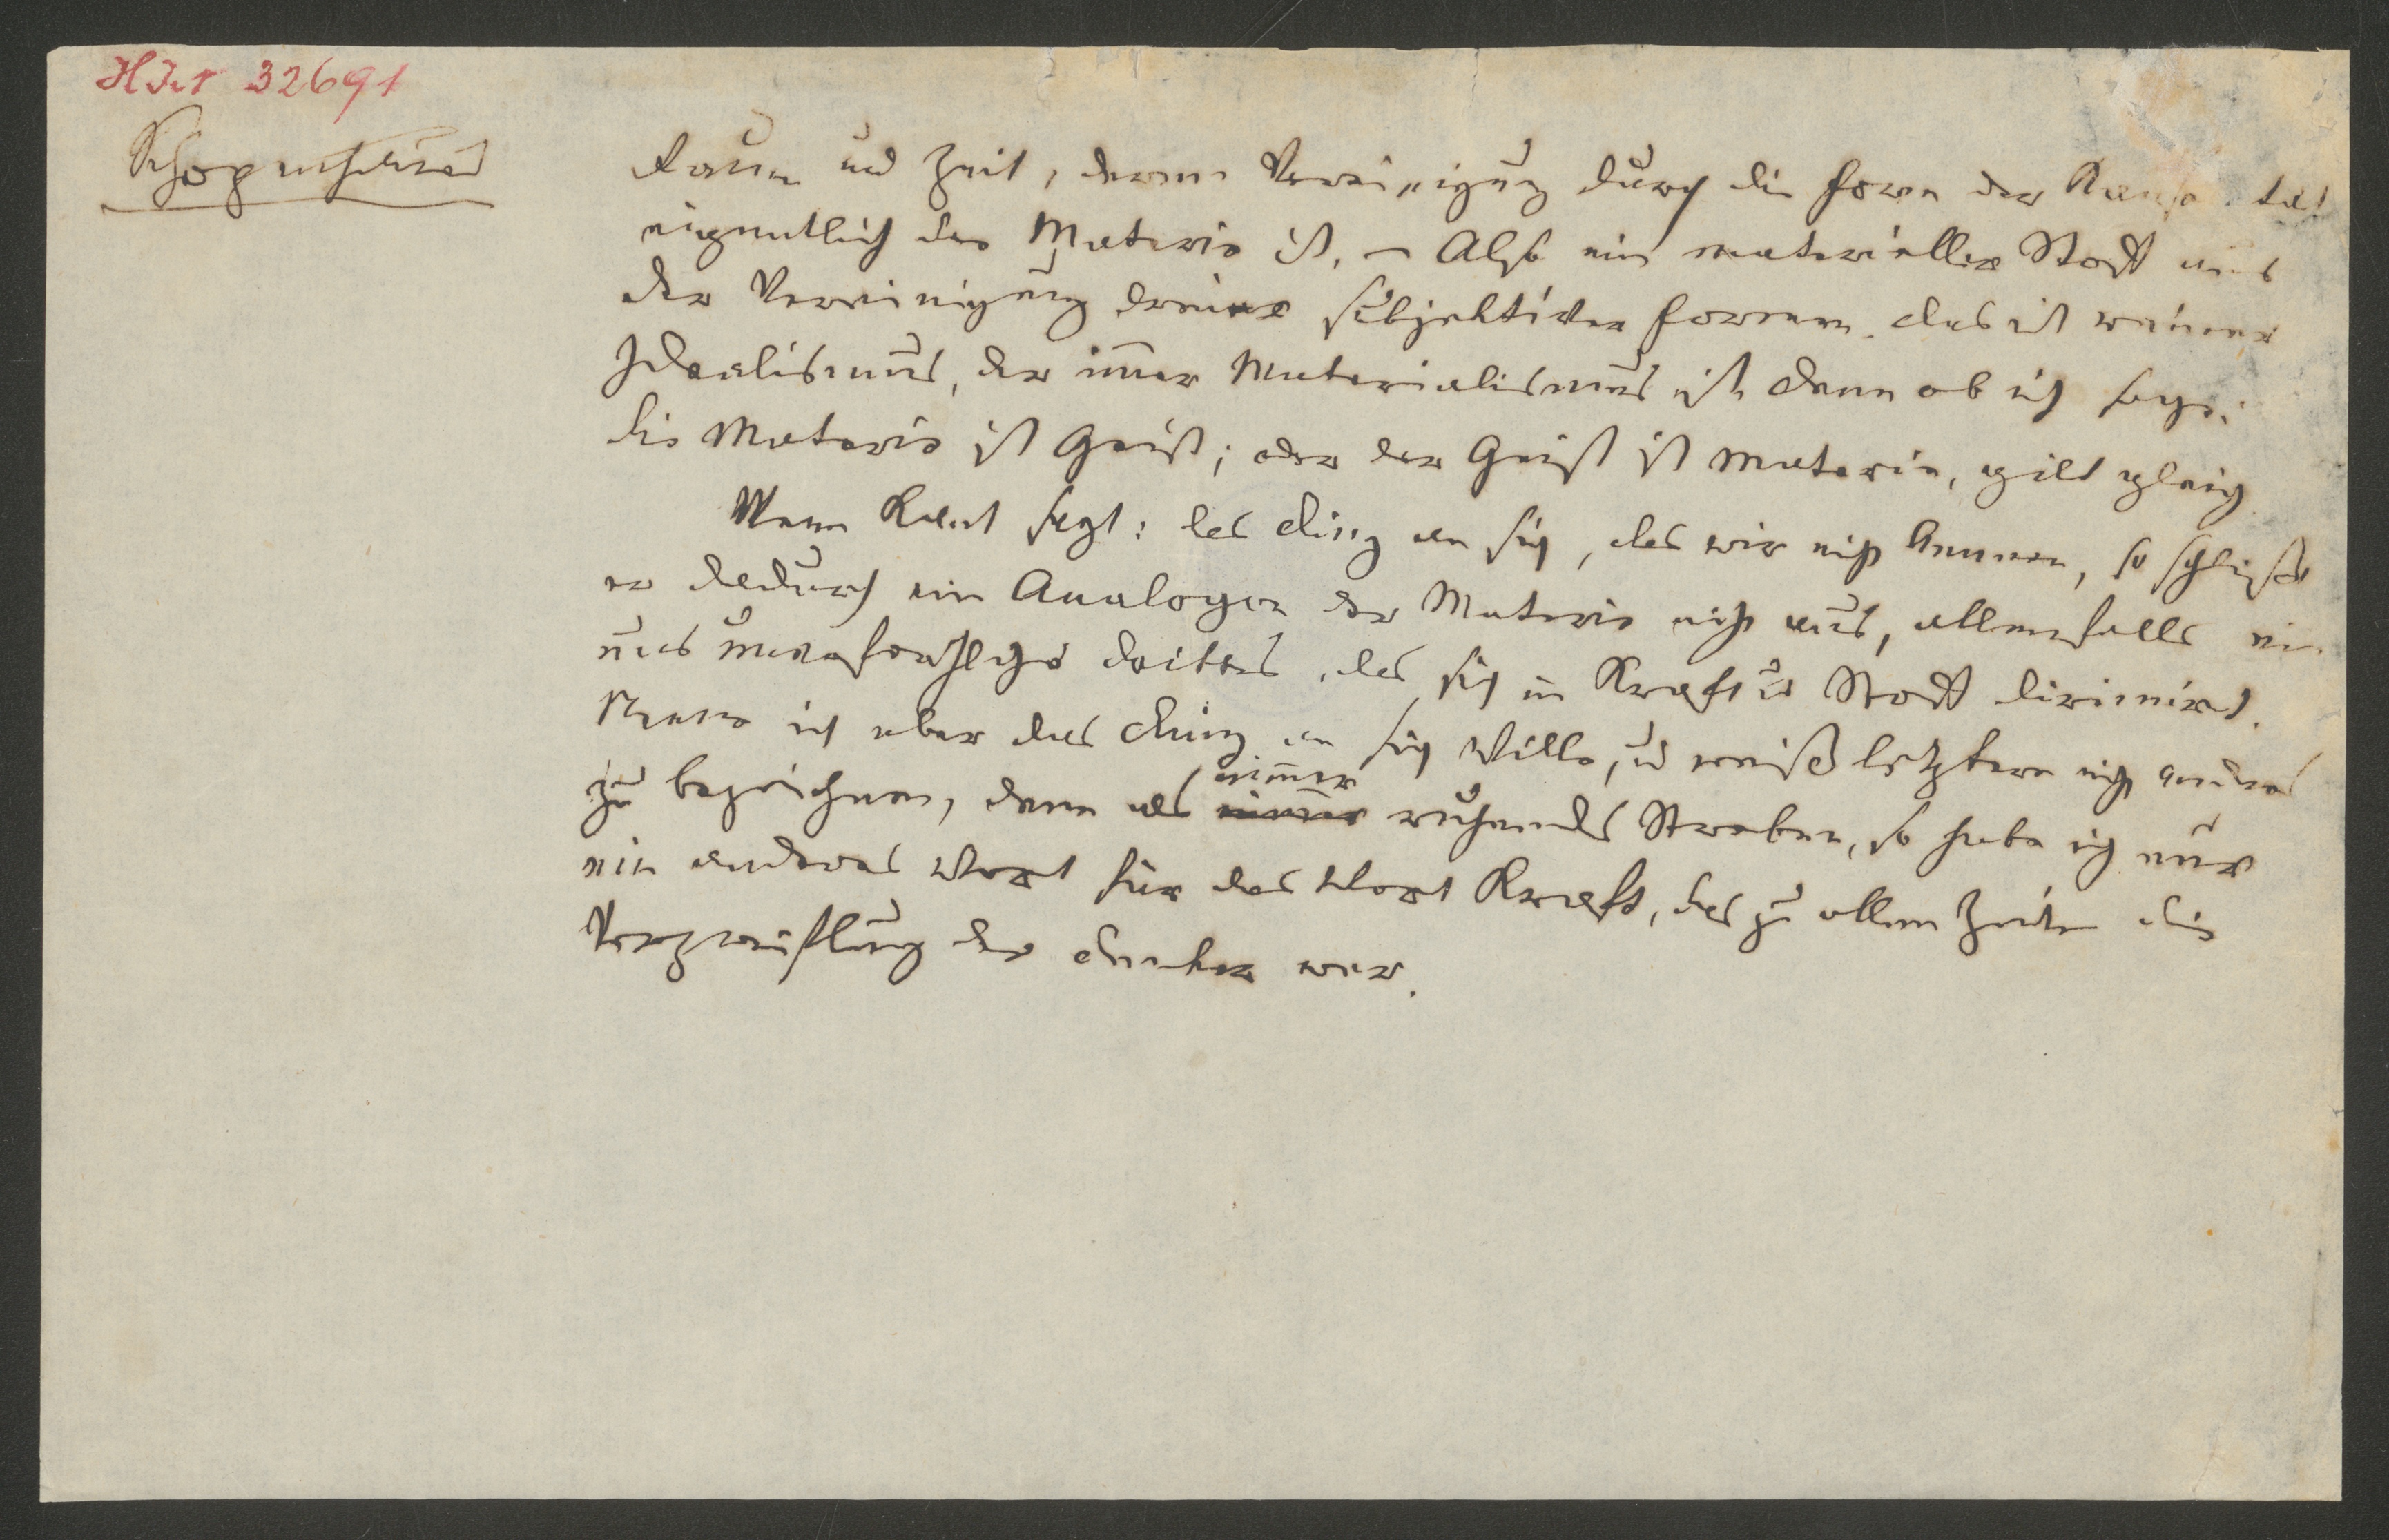 H.I.N. 32691
Schopenhauer
Raum und Zeit, deren Vereinigung durch die Form der Kausa tät
eigentlich die Materie ist. – Also ein materieller Stoff aus
der Vereinigung dreier subjektiver Formen. das ist reiner
Idealismus, der im̄er Materialismus ist, denn ob ich sage:
die Materie ist Geist; oder der Geist ist Materie, gilt gleich
Wenn Kant sagt: das Ding an sich, das wir nicht kennen, so schließt
er dadurch ein Analogon der Materie nicht aus, allenfalls ein
uns unerforschliches drittes, das sich in Kraft u Stoff dirimirt.
Nenne ich aber das Ding an sich Wille, u weiß letztern nicht anders
nim̄er
zu bezeichnen, denn als im̄er ruhendes Streben, so habe ich nur
ein anderes Wort für das Wort Kraft, das zu allen Zeiten die
Verzweiflung der Denker war.